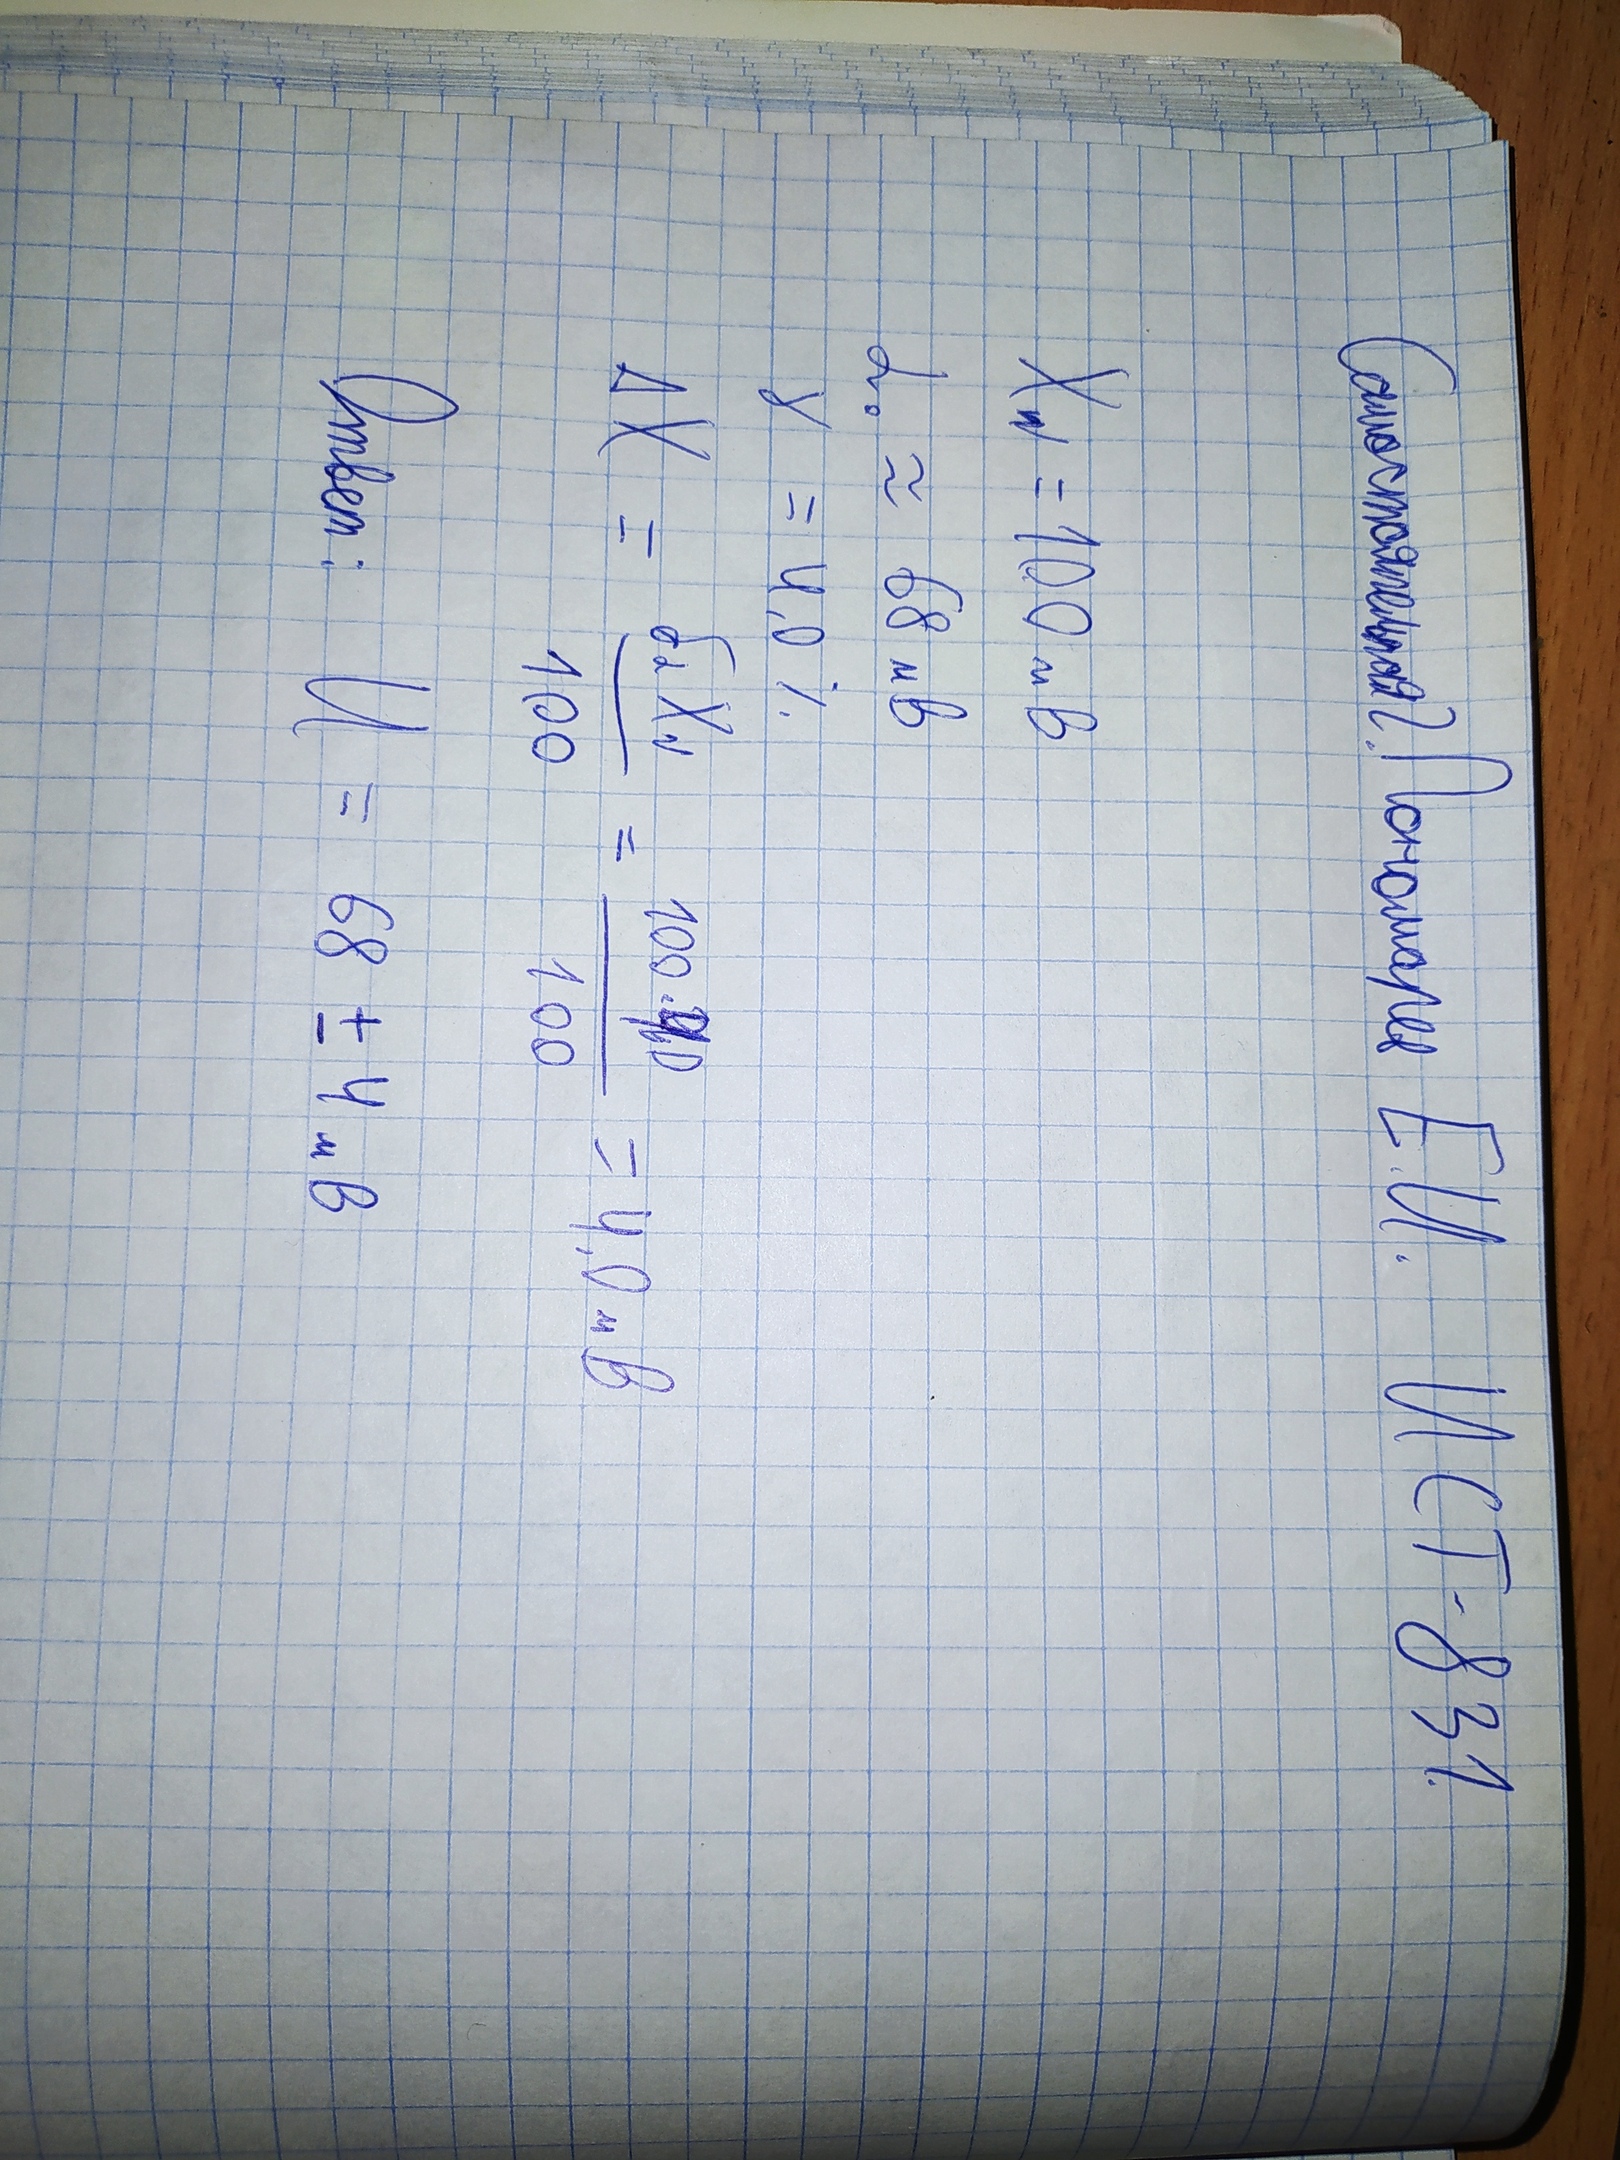 Самостоятельная 2. Пономарев Е.И. ИСТ-831
X_N = 100 мВ
≈ 68 мВ
γ = 4,0 %
ΔX = X_N / 100 = 100 · 4,0 / 100 = 4,0 мВ
Ответ: U = 68 ± 4 мВ